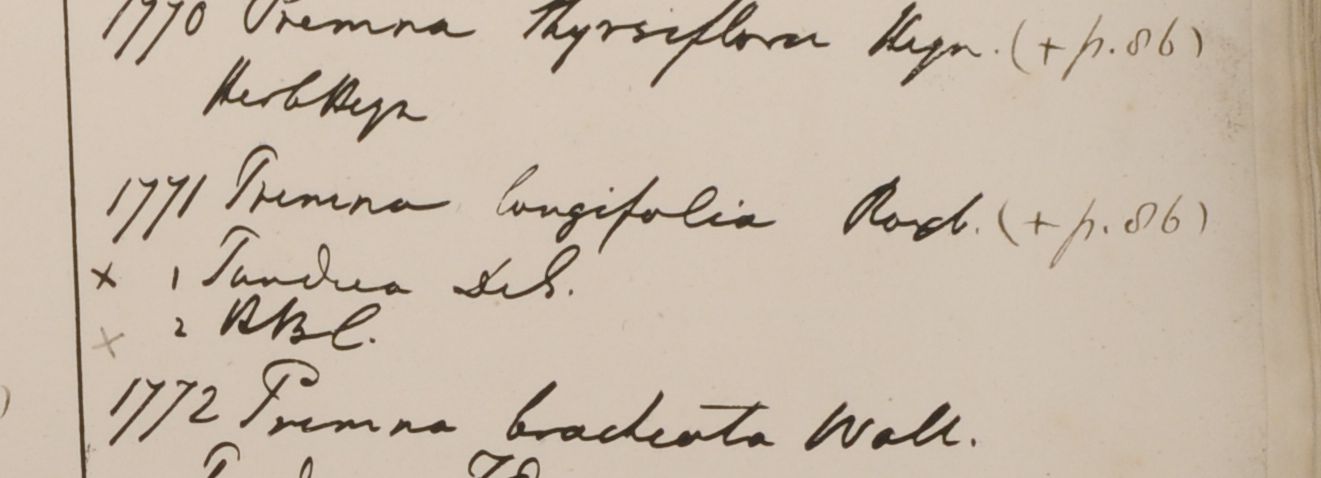 1770 Premna thyrsiflora Heyn. (+ p. 86)
Herb Heyn
1771 Premna longifolia Roxb. (+ p. 86)
× 1 Pundua
× 2 HBC.
1772 Premna bracteata Wall.